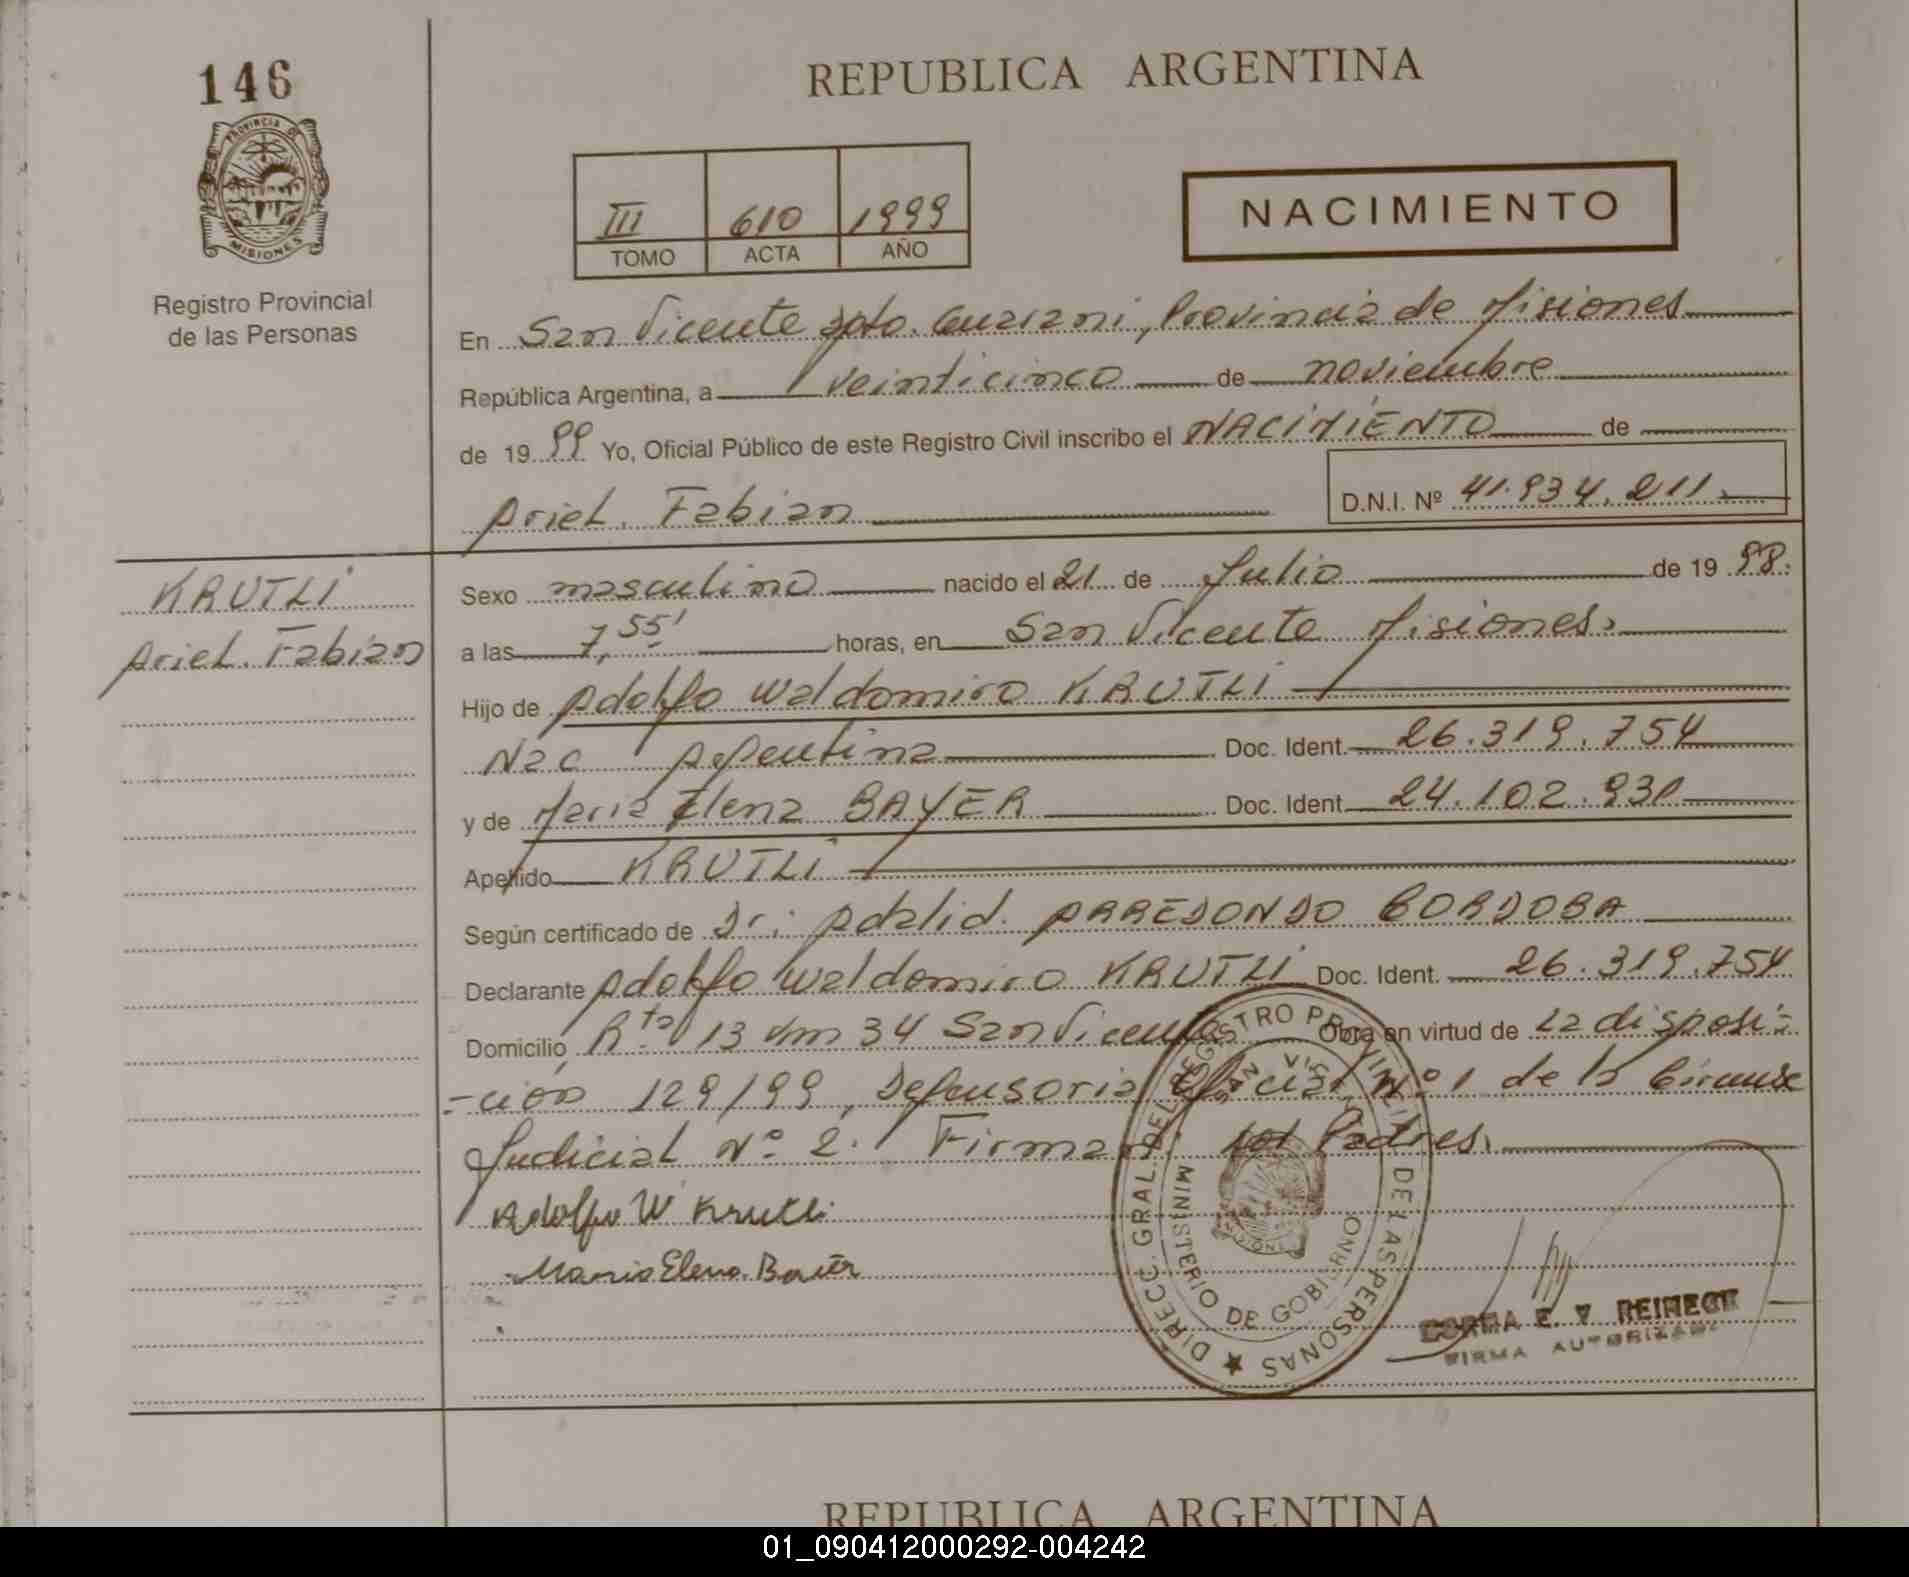 146
REPUBLICA ARGENTINA
PROVINCIA DE
MISIONES
Registro Provincial
de las Personas
III 610 1999
TOMO ACTA AÑO
NACIMIENTO
En San Vicente Dpto. Guarani, Provincia de Misiones
República Argentina, a veinticinco de noviembre
de 1999 Yo, Oficial Público de este Registro Civil inscribo el NACIMIENTO de
Ariel Fabian
D.N.I. Nº 41.934.211
KRUTLI
Ariel Fabian
Sexo masculino nacido el 21 de Julio de 1998.
a las 7,55' horas, en San Vicente Misiones.
Hijo de Adolfo Waldomiro KRUTLI
Nac Argentina Doc. Ident. 26.319.754
y de Maria Elena BAYER Doc. Ident. 24.102.930
Apellido KRUTLI
Según certificado de Dr. Adalid ARREDONDO CORDOBA
Declarante Adolfo Waldomiro KRUTLI Doc. Ident. 26.319.754
Domicilio Rta 13 km 34 San Vicente Obra en virtud de La disposi-
-ción 129/99, Defensoria Oficial Nº 1 de la Circunsc
Judicial Nº 2. Firman los Padres.
Adolfo W Krutli
Maria Elena Bayer
DIRECC. GRAL. DEL REGISTRO PROVINCIAL DE LAS PERSONAS
MINISTERIO DE GOBIERNO
SAN VIC
E. V. REINECK
FIRMA AUTORIZADA
REPUBLICA ARGENTINA
01_090412000292-004242